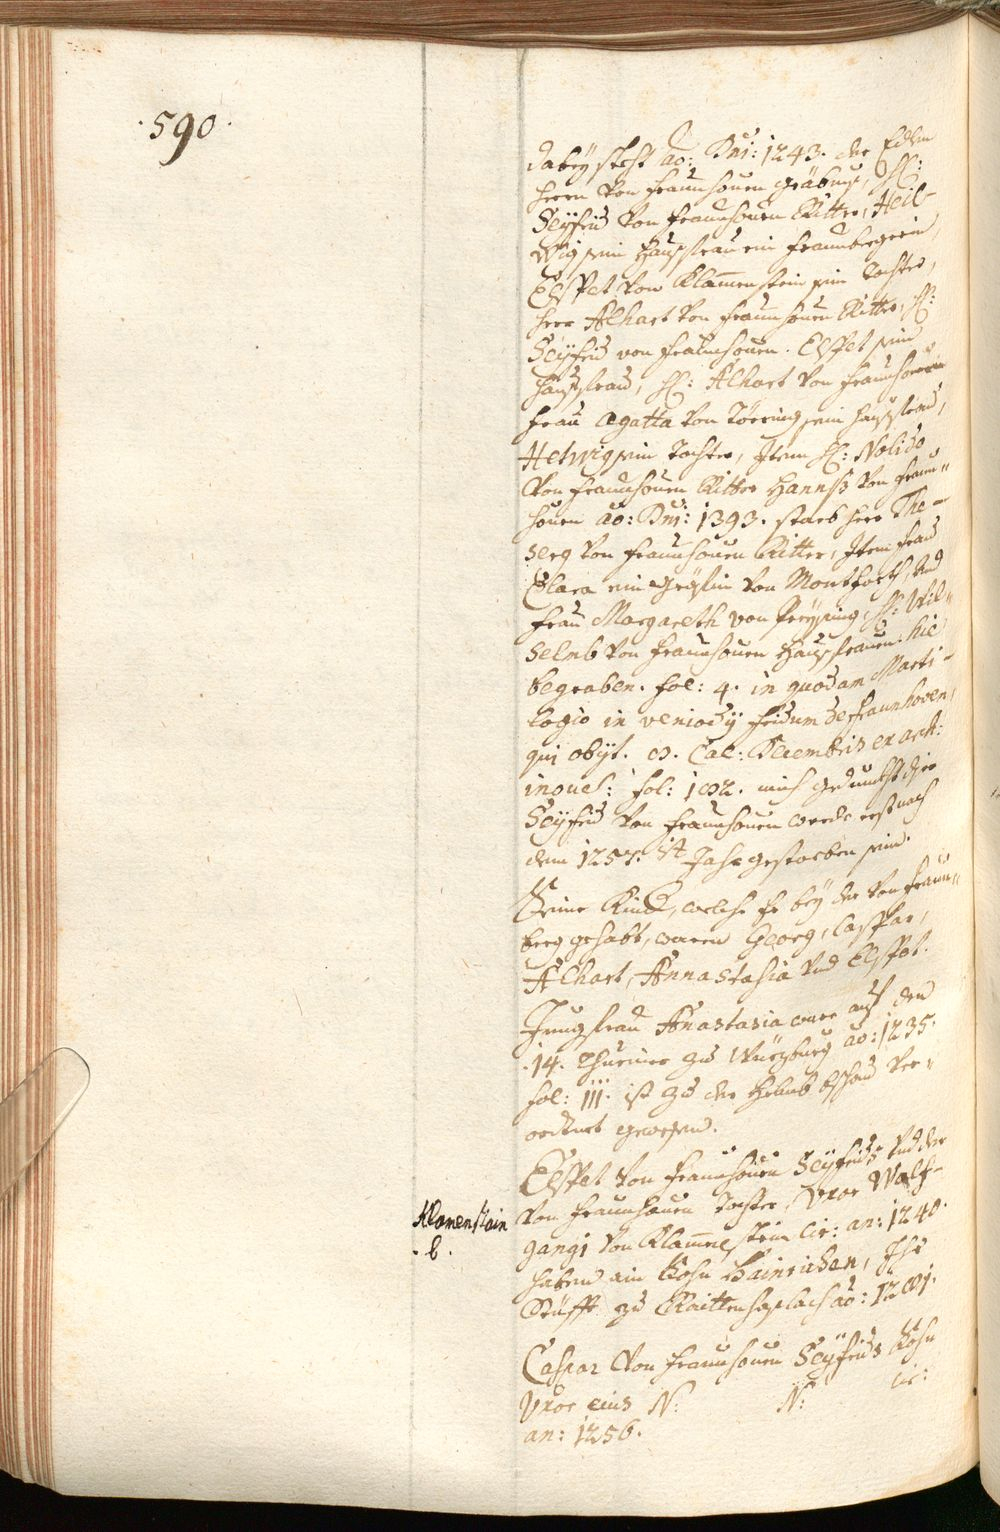 ·590·
dabeÿ steht ao: Dni: 1243. der Edlen
herrn von Fraunhouen gräbnus, H:
Seÿfrid von Fraunhouen Ritter, Heil-
wig sein Haußfrau ein Fraunbergerin,
Elspet von Klamenstein sein Tochter,
herr Alhart von Fraunhouen Ritter, H:
Seÿfrid von Fraunhouen. Elspet sein
haußfrau, H: Alhart von Fraunhouen
frau Agatta von Törring sein haußfrau,
Hetwig sein Tochter, Item H:
von Fraunhouen Ritter Hannß von Fraun„
houen ao: Dni: 1393. starb herr The-
serg von Fraunhouen Ritter, Item frau
Clara ein Gräfin von Montforth, vnd
frau Margareth von Preÿsing H: Wil„
helmb von Fraunhouen Haußfrauen hie
begraben. fol: 4. in quodam Marti-
logio in Fridum de Fraunhoven,
qui obÿt. Cal: Decembris ex act:
fol: mich gedunckt diser
Seÿfrid von Fraunhouen werde erst nach
dem 1257. Jahr gestorben sein.
Seine Kind, welche Er beÿ der von Fraun„
berg gehabt, waren Georg, Caspar,
Alhart, Annastasia vnd Elspet.
Jungfrau Anastasia ware auf den
·14· Thurnier zu Würzburg ao: 1235.
fol: 111. ist zu der Helmb bschau ver„
ordtnet gewesen.
Elspet von Fraunhouen Seÿfrids vnd der
von Fraunhauen Tochter, vxor Wolf-
gangi von Klamenstein cir: an: 1240.
haben ein Sohn Hainrichen, Ihr
Stüfft zu Raittenhaslach ao:
Caspar von Fraunhouen Seÿfrids Sohn
vxor eius N: N: cir:
an: 1256.
Klamenstain
·b·